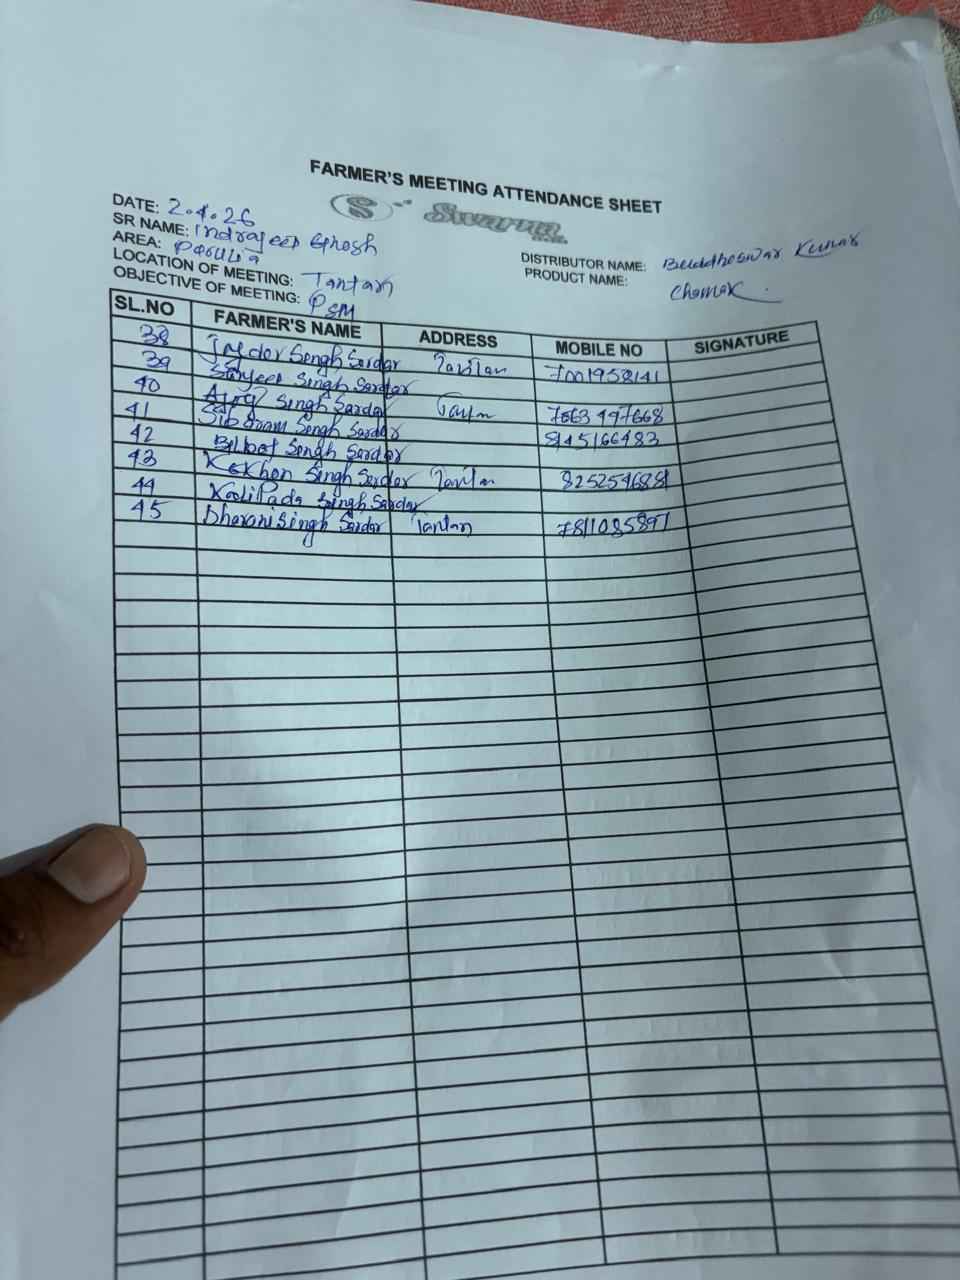 FARMER'S MEETING ATTENDANCE SHEET
S Swarna
DATE: 2.4.26
SR NAME: Indrajeep Ghosh
AREA:
LOCATION OF MEETING: Tantan
OBJECTIVE OF MEETING: PSM
DISTRIBUTOR NAME: Buddheswar Kumar
PRODUCT NAME: Chamak
SL.NO FARMER'S NAME ADDRESS MOBILE NO SIGNATURE
38 Singh Sardar Tantan 7001958141
39 Singh Sardar
40 Ajoy Singh Sardar Tantan 7863497668
41 Sibaram Singh Sardar 8145166483
42 Singh Sardar
43 Kokhon Singh Sardar Tantan 8252546881
44 Kalipada Singh Sardar
45 Dharani Singh Sardar Tantan 7811085897